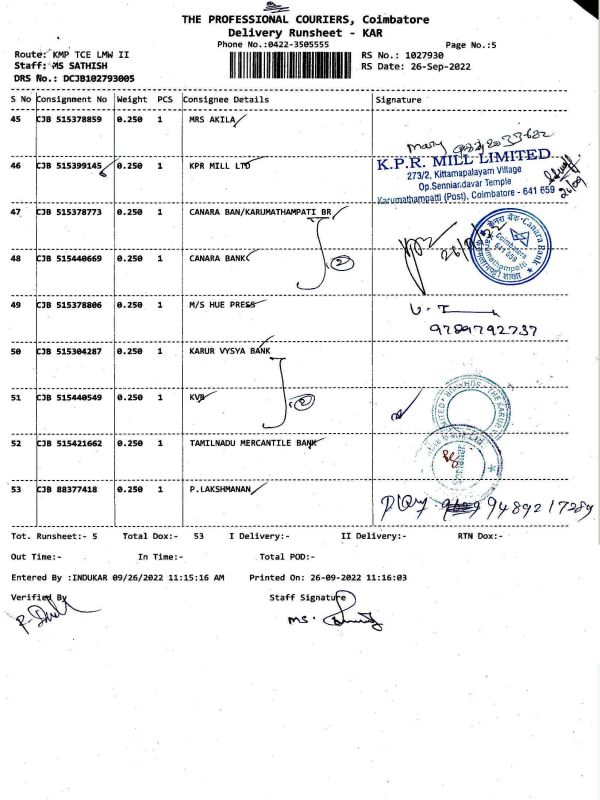 THE PROFESSIONAL COURIERS, Coimbatore
Delivery Runsheet - KAR
Phone No.:0422-3505555
Page No.:5
Route: KMP TCE LMW II
RS No.: 1027930
Staff: MS SATHISH
RS Date: 26-Sep-2022
DRS No.: DCJB102793005
S No Consignment No Weight PCS Consignee Details Signature
45 CJB 515378859 0.250 1 MRS AKILA
46 CJB 515399145 0.250 1 KPR MILL LTD
K.P.R. MILL LIMITED
273/2, Kittamapalayam Village
Op.Senniandavar Temple
Karumathampatti (Post), Coimbatore - 641 659
26/09
47 CJB 515378773 0.250 1 CANARA BAN/KARUMATHAMPATI BR
26/9/22
केनरा बैंक Canara Bank
Coimbatore
641 659
48 CJB 515440669 0.250 1 CANARA BANK
2
49 CJB 515378806 0.250 1 M/S HUE PRESS
9789792737
50 CJB 515304287 0.250 1 KARUR VYSYA BANK
51 CJB 515440549 0.250 1 KVB
2
52 CJB 515421662 0.250 1 TAMILNADU MERCANTILE BANK
53 CJB 88377418 0.250 1 P.LAKSHMANAN
9489217289
Tot. Runsheet:- 5 Total Dox:- 53 I Delivery:- II Delivery:- RTN Dox:-
Out Time:- In Time:- Total POD:-
Entered By :INDUKAR 09/26/2022 11:15:16 AM Printed On: 26-09-2022 11:16:03
Verified By Staff Signature
MS.